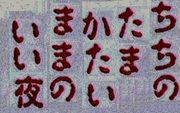 ちちの
たま
かたい
ままの
いい夜